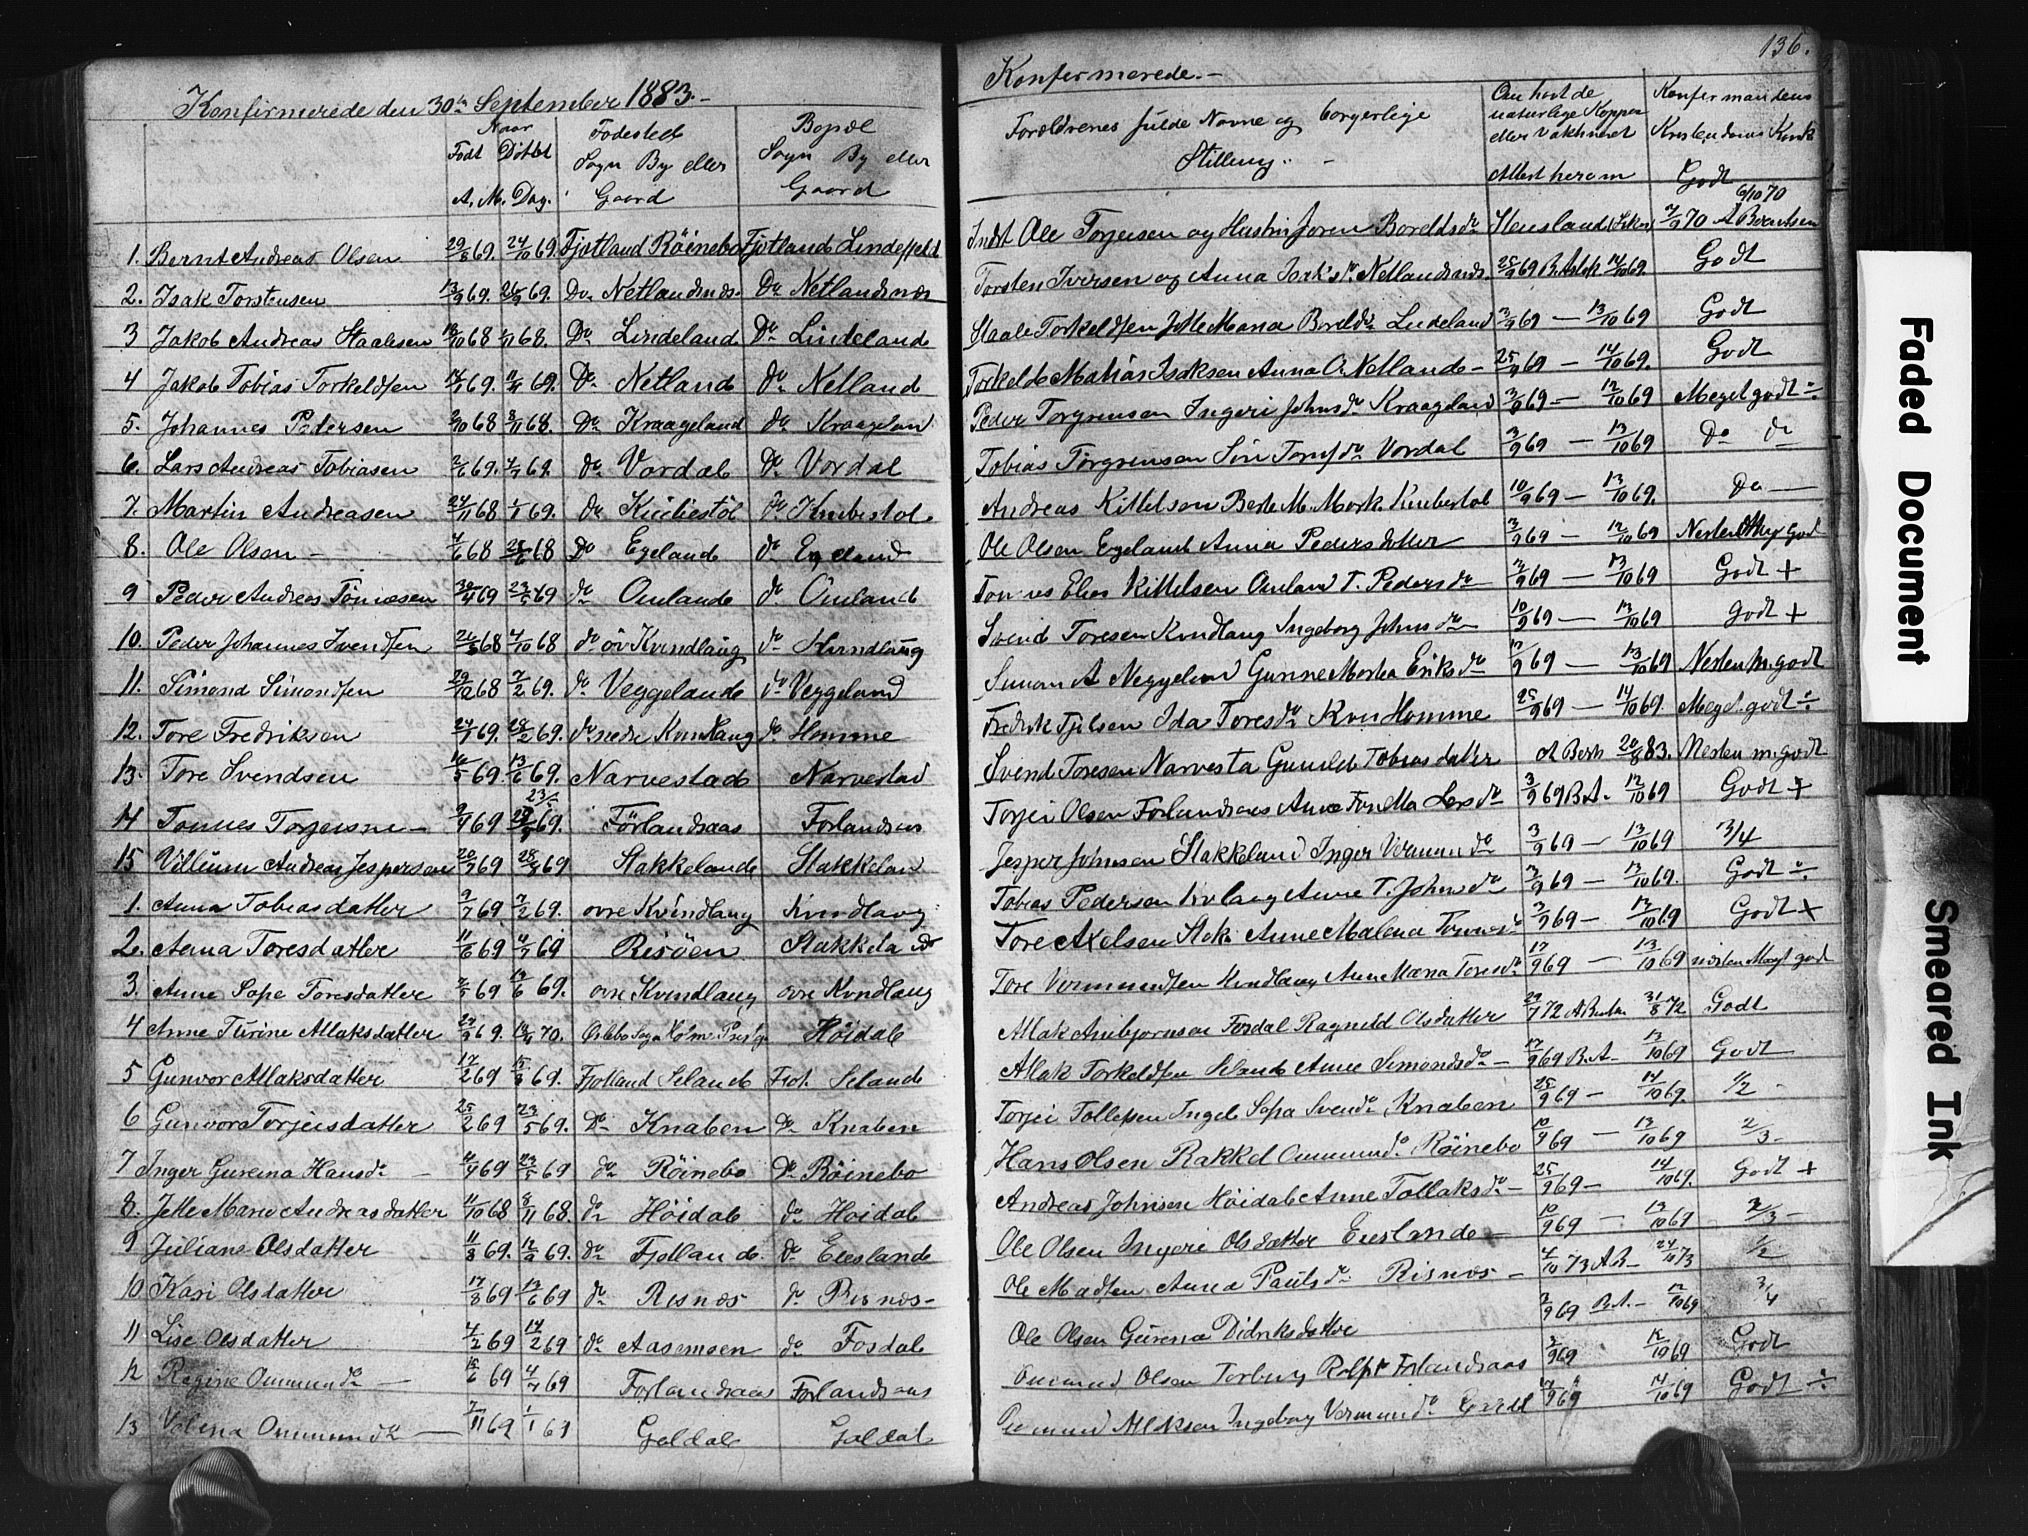 Konfirmerede den 30te September 1883.-
Naar
Født Døbt
A. M. Dag.
Fødested
Sogn By eller
Gaard
Bopæl
Sogn By eller
Gaard
1. Bernt Andreas Olsen 29/8 69. 24/10 69. Fjotland Röinebo Fjotland Lindefjeld
2. Isak Torstensen 13/9 69. 26/9 69. Do Netlandsnæs. Do Netlandsnæs
3 Jakob Andreas Staalesen 13/10 68 1/11 68. Do Lindeland Do Lindeland
4 Jakob Tobias Torkeldsen 69. 69. Do Netland Do Netland
5. Johannes Pedersen 2/10 68 8/11 68. Do Kraageland do Kraagelan
6. Lars Andreas Tobiasen 69. 69 do Vordal Do Vordal
7. Martin Andreasen 24/11 68 1/1 69. do Knibestöl do Knibestol.
8. Ole Olsen - 4/6 68 68 Do Egeland do Egeland
9 Peder Andreas Tönnesen 69 23/5 69 do Omland do Omland
10. Peder Johannes Svendsen 68 4/10 68 do öv Kvindlaug do Kvindlaug
11. Simond Simondsen 29/12 68 7/2 69. do Veggeland do Veggeland
12. Tore Fredriksen 24/1 69. 28/2 69. do nedre Kvinlaug do Homme
13. Tore Svendsen 16/5 69. 13/6 69. Narvestad Narvestad
23/5
14 Tönnes Torjeisne - 9/4 69 69. Förlandsaas Forlandsaas
15 Villum Andreas Jespersen 20/3 69 28/3 69 Stakkeland Stakkeland
1. Anna Tobiasdatter 69 7/2 69. ovre Kvindlaug Kvindlaug
2. Anna Toresdatter 11/6 69. 4/7 69 Risöen Stakkeland
3. Anne Sope Toresdatter 69 13/6 69. ovre Kvindlaug ovre Kvndlaug
4 Anne Turine Allaksdatter 69. 70. Höidal
5 Gunvor Allaksdatter 17/2 69 69. Fjotland Seland Fjot. Seland
6 Gunvora Torjeisdatter 25/2 69 23/5 69. Do Knaben do Knaben
7 Inger Gurena Hansdr - 69 23/5 69 do Röinebo Do Röinebo
8. Jette Marie Andreasdatter 11/10 68 8/11 68. do Höidal do Höidal
9 Juliane Olsdatter 11/8 69. 12/9 69. do Fjotland. do Eieslande
10 Kari Olsdatter 69 13/6 69 do Risnæs do Risnæs-
11 Lise Olsdatter 4/2 69 14/2 69 do Aasemoen do Fosdal
12 Regine Ommundsdr - 69 4/7 69 Forlandsaas Forlandsaas
13 Ommundsdr - 1/1 Galdal Galdal
136.
Konfirmerede.-
Forældrenes fulde Navne og borgerlige
Stilling. -
Om havt de
naturlige Kopper
eller vakkineret
Attest herom
Konfirmandens
Kristendoms Kund
Godt
6/10 70
Indt Ole Torjeisen og Hustru Joren Boreldsdr Hensland 70 A Berntsen
Torsten Iversen og Anna Isaksdr Netlandsnæs. 25/9 69 B. Aslak 14/10 69. Godt
Staale Torkeldsen Jette Maria Boreldsdr Lindeland 3/9 69 - 13/10 69 Godt
Torkeld Matias Isaksen Anna O. Netland - 25/9 69 - 14/10 69. Godt
Peder Torgrensen Ingeri Johnsdr Kraageland 3/9 69 - 12/10 69 Meget godt ÷
Tobias Törgrensen Siri Tomsdr Vordal 3/9 69 - 13/10 69 Do do
Andreas Kittelsen Berte M. Mork. Knibestøl 10/9 69 - 13/10 69. Do -
Ole Olsen Egeland Anna Pedersdatter 3/9 69 - 12/10 69 Nesten Meg god
Tönnes Elias Kittelsen Omland T. Pedersdr 69 - 13/10 69 Godt +
Svend Toresen Kvndlaug Ingeborg Johnsdr 10/9 69 - 13/10 69 Godt +
Simon A Veggeland Gunne Marta Eriksdr 69 - 13/10 69 Nesten m. godt
Fredrik Tjelsen Ida Toresdr Kvn Homme 25/9 69 - 14/10 69. Meget godt ÷
Svend Toresen Narvesta Gunild Tobiasdatter A Bern 20/8 83. Nesten m. godt
Torjei Olsen Forlandsaas Anne Larsdr 3/9 69 B A. 12/10 69 Godt +
Jesper Johnsen Stakkeland Inger Vermundr 3/9 69 - 13/10 69 3/4
Tobias Pedersen Kvlaug Anne T. Johnsdr 3/9 69 - 13/10 69. Godt ÷
Tore Axelsen Stak. Anne Malena Tönnes 3/9 69 - 13/10 69 Godt +
Tore Vermundsen Kvndlaug Anne Toresdr 17/9 69 - 13/10 69 nesten Meget god
Allak Anbjornsen Fosdal Ragnild Olsdatter 29/7 72 A Bernt. 31/8 72 Godt
Allak Torkeldsen Seland Anne Simondsdr - 17/9 69 B. A - 13/10 69 Godt
Torjei Tollefsen Ingeb Sopa Svendr Knaben 25/9 69 - 14/10 69. 1/2 -
Hans Olsen Rakkel Ommundr Röinebo 10/9 69 - 13/10 69 2/3 -
Andreas Johnsen Höidal Anne Tollaksdr - 25/9 69 - 14/10 69. Godt +
Ole Olsen Ingeri Olsdatter Eiesland - 10/9 69 - 13/10 69 2/3 -
Ole Madsen Anna Paulsdr Risnæs - 4/10 73 A B - 24/10 73 1/2
Ole Olsen Gurena Didriksdatter 3/9 69 B. A. - 12/10 69 3/4
Ommund Olsen Torborg Rolfs Forlandsaas 3/9 69 12/10 69 Godt
Ommund Allaksen Ingeborg Vermundr 69 14/10 69 Godt ÷
Faded Document
Smeared Ink